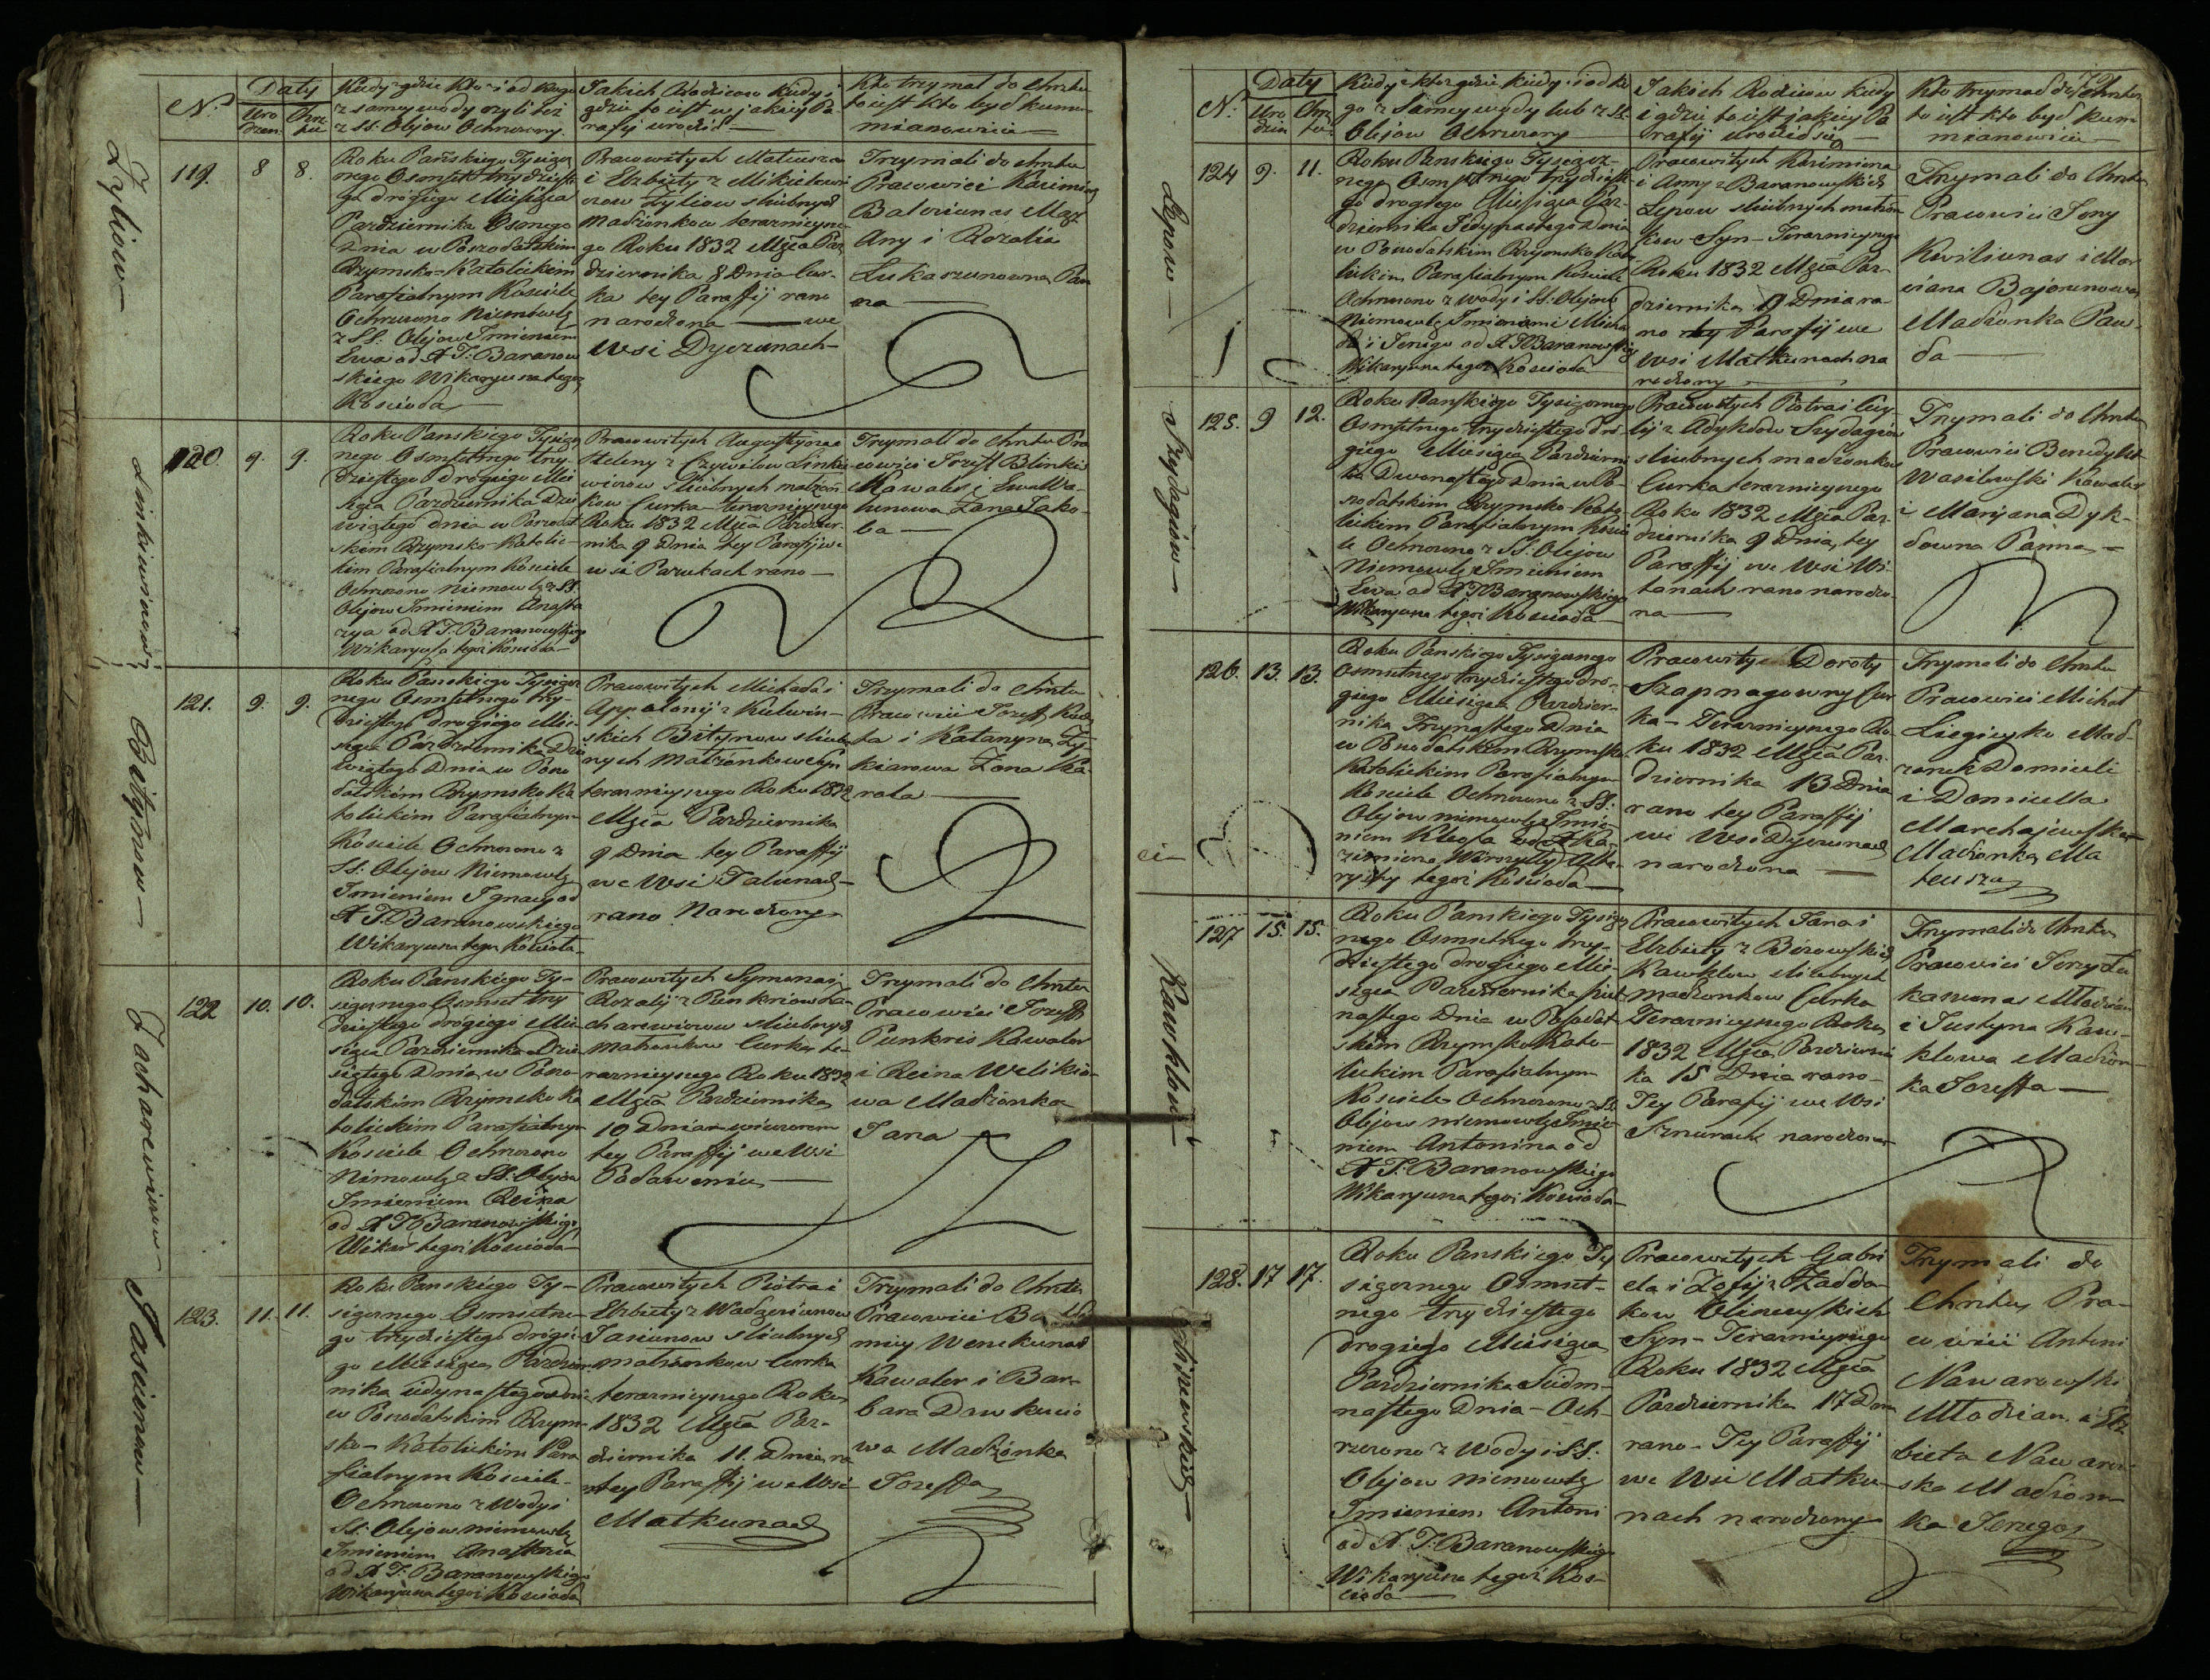 N.
Daty
Uro
dzen.
Chrz
tu
Kiedy gdzie Kto i od kogo
z samey wody czyli też
z SS. Olejow Ochrzczony.
Jakich Rodzicow Kiedy i
gdzie to iest w jakiey Pa
rafij urodził
Kto trzymał do Chrztu
to iest kto był kumem
mianowicie
Zyliow
119.
8
8.
Roku Pańskiego Tysiącz
nego Osmset trzydzieste
go drógiego Miesiąca
Pazdziernika Osmego
Dnia w Poszodatskim
Rzymsko-Katolickim
Parafialnym Kościele
Ochrzczono Niemowlę
z SS. Olejow Imieniem
Ewa od X J: Baranow
skiego Wikaryusza tegoż
Kościoła
Pracowitych Mateusza
i Elzbiety z Mikielewi
czow Zyliow slubnych
Małzonkow terazniejsze
go Roku 1832 Mzca Paz
dziernika 8 Dnia Cur
ka tey Paraffij rano
narodzona we
Wsi Dyczunach
Trzymali do Chrztu
Pracowici Kazimierz
Baleiunas
Any i Rozalia
Łukaszunowna Pan
na
Linkiewiczow
120
9.
9.
Roku Panskiego Tysiącz
nego Osmsetnego trzy
dziestego drógiego Mie
siąca Pazdziernika Dzie
wiątego dnia w Poszodat
skim Rzymsko Katolic
kim Parafialnym Kościele
Ochrzczono niemowlę z SS.
Olejow Imieniem Anasta
zya od X J. Baranowskiego
Wikaryusza tegoż Kościoła
Pracowitych Augustyna
Heleny z Czywilow Linkie
wiczow Slubnych małżon
kow Curka terazniejszego
Roku 1832 Mzca Pazdzier
nika 9 Dnia tey Parafij we
wsi Parutach rano
Trzymali do Chrztu Pra
cowici Jozeff Blinkis
Kawaler i Ewa
Żona Jako
ba
Bitynow
121.
9.
9.
Roku Pańskiego Tysiącz
nego Osmsetnego trzy
dziestego drogiego Mie
siąca Pazdziernika Dzie
wiątego Dnia w Poszo
datskim Rzymsko Ka
tolickim Parafialnym
Kościele Ochrzczono z
SS: Olejow Niemowlę
Imieniem Ignacy od
X J. Baranowskiego
Wikaryusza tegoż Kościoła
Pracowitych Michała i
Appolonij z Kulwin
skich Bitynow slub
nych Małżonkow Syn
terazniejszego Roku 1832
Mzca Pazdziernika
9 Dnia tey Paraffij
we Wsi Talunach
rano Narodzony
Trzymali do Chrztu
Pracowici Jozeff
ta i Katarzyna
kiarowa Żona
rola
Zacharewiczow
122
10.
10.
Roku Panskiego Ty
siącznego Osmset trzy
dziestego drogiego Mie
siąca Pazdziernika Dzie
siątego Dnia w Poszo
datskim Rzymsko Ka
tolickim Parafialnym
Kościele Ochrzczono
Niemowlę z SS: Olejow
Imieniem Reina
od X J Baranowskiego
Wikar tegoż Kościoła
Pracowitych Symona i
Rozalij z Punkriow Za
charewiczow slubnych
Małżonkow Curka te
razniejszego Roku 1832
Mzca Pazdziernika
10 Dnia wieczorem
tey Paraffij we Wsi
Trzymali do Chrztu
Pracowici Jozeff
Punkris Kawaler
i Reina Welikia
wa Małżonka
Jana
Jasienow
123.
11.
11.
Roku Panskiego Ty
siącznego Osmsetne
go trzydziestego drógie
go Miesiąca Pazdzier
nika iedynastego dnia
w Poszodatskim Rzym
sko-Katolickim Para
fialnym Kościele
Ochrzczono z Wody i
SS: Olejow niemowlę
Imieniem Anastazia
od X J: Baranowskiego
Wikaryusza tegoż Kościoła
Pracowitych Piotra i
Elzbiety z
Jasienow slubnych
małżonkow Curka
terazniejszego Roku
1832 Mzca Paz
dziernika 11. Dnia ra
no tey Paraffij we Wsi
Matkunach
Trzymali do Chrztu
Pracowici
miey Wenckunas
Kawaler i Bar
bara
wa Małżonka
Jozeffa
N.
Daty
Uro
dzin
Chrz
tu
Kiedy kto gdzie kiedy i od ko
go z Samey wody lub z SS.
Olejow Ochrzczony
Jakich Rodzicow kiedy
i gdzie to iest jakiey Pa
rafij urodził się
Kto trzymał do Chrztu
to iest kto był kum
mianowicie
Lepow
124
9.
11.
Roku Panskiego Tysiącz
nego Osmsetnego trzydzieste
go drogiego Miesiąca Paz
dziernika Jedynastego Dnia
w Poszodatskim Rzymsko Kato
lickim Parafialnym Kościele
Ochrzczono z Wody i SS: Olejow
Niemowlę Imionami Micha
ła i Jerzego od X J Baranowskiego
Wikaryusza tegoż Kościoła
Pracowitych Kazimierza
i Anny z Baranowskich
Lepow slubnych małżon
kow Syn Terazniejszego
Roku 1832 Mzca Paz
dziernika 9 Dnia ra
no tey Parafij we
Wsi Matkunach na
rodzony
Trzymali do Chrztu
Pracowici Jerzy
Kwiliunas i Ma
riana Bajorunowa
Małżonka Paw
ła
Szydagiow
125.
9
12.
Roku Panskiego Tysiącznego
Osmsetnego trzydziestego dró
giego Miesiąca Pazdzierni
ka Dwonastego Dnia w Po
szodatskim Rzymsko-Kato
lickim Parafialnym Kościele
Ochrzczono z SS. Olejow
Niemowlę Imieniem
Ewa od X J Baranowskiego
Wikaryusza tegoż Kościoła
Pracowitych Piotra i Cecy
lij z Adykłow Szydagiow
slubnych małżonkow
Curka terazniejszego
Roku 1832 Mzca Paz
dziernika 9 Dnia tey
Paraffij we Wsi Wi
tanach rano narodzo
na
Trzymali do Chrztu
Pracowici Benedykt
Wasilewski Kawaler
i Maryana Dyk
sowna Panna
126.
13.
13.
Roku Panskiego Tysiącznego
Osmsetnego trzydziestego dro
giego Miesiąca Pazdzier
nika Trzynastego Dnia
w Poszodatskim Rzymsko
Katolickim Parafialnym
Kościele Ochrzczono z SS:
Olejow niemowlę Imie
niem Kleofa od X Ka
zimierza
tegoż Kościoła
Pracowitey Doroty
Szapnagowny Cur
ka Terazniejszego Ro
ku 1832 Mzca Paz
dziernika 13 Dnia
rano tey Paraffij
we Wsi Dyczunach
narodzona
Trzymali do Chrztu
Pracowici Michał
Mał
żonek Domiceli
i Domicella
Marchajewska
Małżonka Ma
teusza
Kawkłow
127
15.
15.
Roku Panskiego Tysiącz
nego Osmsetnego trzy
dziestego drogiego Mie
siąca Pazdziernika piet
nastego Dnia w Poszodat
skim Rzymsko Kato
lickim Parafialnym
Kościele Ochrzczono z SS.
Olejow niemowlę Imie
niem Antonina od
X J: Baranowskiego
Wikaryusza tegoż Kościoła
Pracowitych Jana i
Elzbiety z Birowskich
Kawkłow slubnych
małżonkow Curka
Terazniejszego Roku
1832 Mzca Pazdzierni
ka 15 Dnia rano
Tey Parafij we Wsi
Sznurach narodzona
Trzymali do Chrztu
Pracowici Jerzy Łu
kaszunas Młodzian
i Justyna Kaw
kłowa Małżon
ka Jozeffa
128.
17
17.
Roku Panskiego Ty
siącznego Osmset
nego trzydziestego
drogiego Miesiąca
Pazdziernika Siedm
nastego Dnia Och
rzczono z Wody i SS.
Olejow niemowlę
Imieniem Antoni
od X. J: Baranowskiego
Wikaryusza tegoż Koś
cioła
Pracowitych Gabri
ela i Zofij z Żadda
kow
Syn Terazniejszego
Roku 1832 Mzca
Pazdziernika 17 Dnia
rano Tey Paraffij
we Wsi Matku
nach narodzony
Trzymali do
Chrztu Pra
cowici Antoni
Nawarowski
Młodzian i Elz
bieta Nawarow
ska Małżon
ka Jerzego